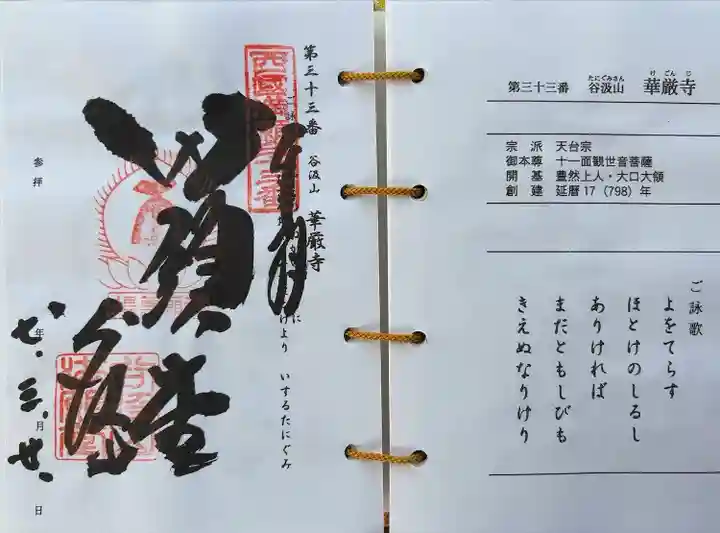 第三十三番 谷汲山 華厳寺
たにぐみさん
けごんじ
宗派 天台宗
御本尊 十一面観世音菩薩
開基 豊然上人・大口大領
創建 延暦17(798)年
ご詠歌
よをてらす
ほとけのしるし
ありければ
まだともしびも
きえぬなりけり
第三十三番 谷汲山 華厳寺
ご詠
より いするたにぐみ
奉拝
満願堂
谷汲山
参拝
七年三月廿日